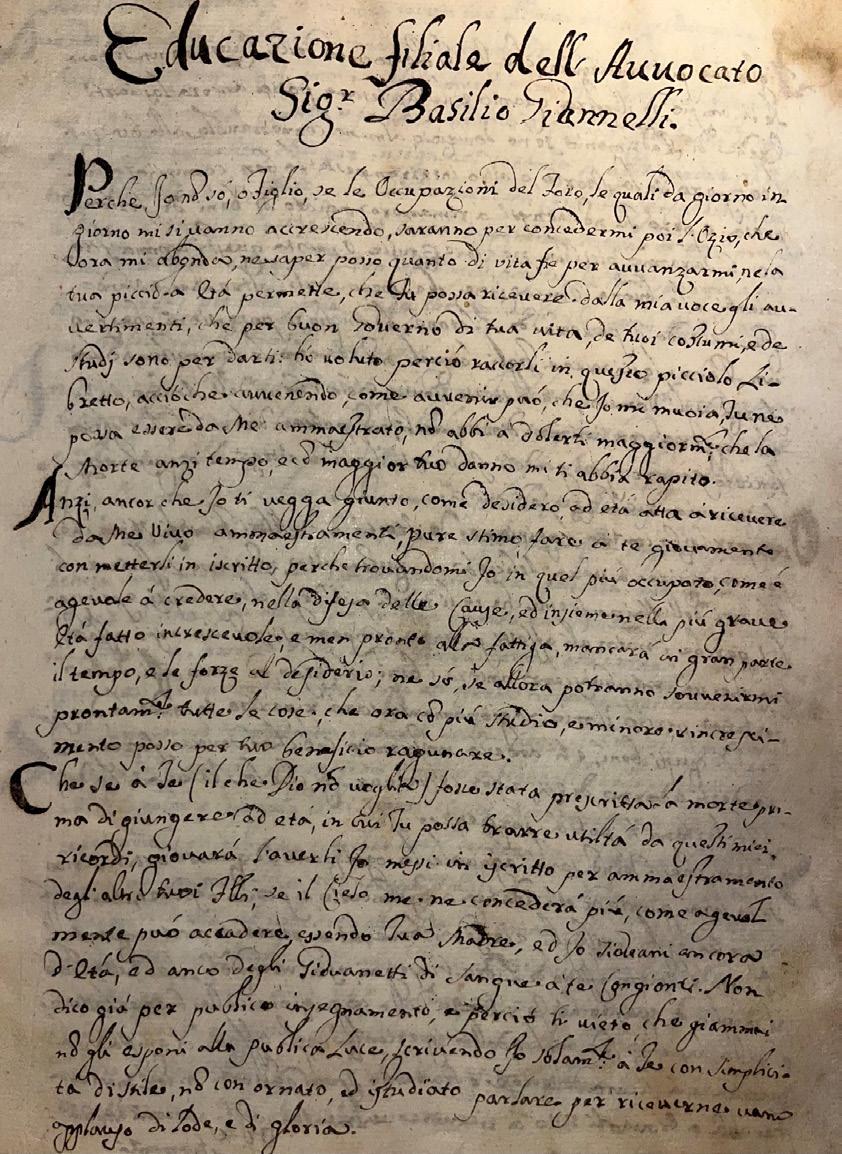 Educazione filiale dell' Avvocato
Sig.r Basilio Giannelli.
Perche Io nō só, o Figlio, se le Occupazioni del Foro, le quali da giorno in
giorno mi si vanno accrescendo, saranno per concedermi poi l'Ozio, che
ora mi abonda, ne saper posso quanto di vita fie per avvanzarmi, ne la
tua picciola Etá permette, che Tu possa ricevere dalla mia voce gli av-
vertimenti, che per buon Governo di tua vita, de tuoi costumi, e de
studj sono per darti: hò voluto perció raccorli in questo picciolo Li-
bretto, accióche avvenendo, come avvenir puó, che Io mi muoia, Tu ne
possa essere da Me ammaestrato, nō abbi a dolerti maggiorm.te, che la
Morte anzi tempo, e cō maggior tuo danno mi ti abbia rapito.
Anzi, ancor che Io ti vegga giunto, come desidero, ad etá atta á ricevere
da Me vivo ammaestramenti, pure stimo fare á te giovamento
con metterli in iscritto, perche trovandomi Io in quel piú occupato, come é
agevole á credere, nella difesa delle Cause, ed insieme nella piú grave
Etá fatto increscevole, e men pronto alla fattiga, mancará in gran parte
il tempo, e le forze al desiderio; ne só, se allora potranno sovvenirmi
prontam.te tutte le cose, che ora cō piú studio, e minore rincresci-
mento posso per tuo beneficio ragunare.
Che se á Te (il che Dio nō voglia) fosse stata prescritta la morte pri-
ma di giungere ad etá, in cui Tu possa trarre utiltá da questi miei
ricordi, giovará l'averli Io messi in iscritto per ammaestramento
degli altri tuoi Flli; se il Cielo me ne concederá piú, come agevol
mente puó accadere, essendo Tua Madre, ed Io Giovani ancora
d'Etá, ed anco degli Giovanetti di sangue á te Congionti. Non
dico giá per publico insegnamento, e perció ti vieto, che giammai
nō gli esponi alla publica Luce, scrivendo Io solam.te á Te con simplici-
tá di stile, nō con ornato, ed istudiato parlare per riceverne vano
applauso di lode, e di gloria.